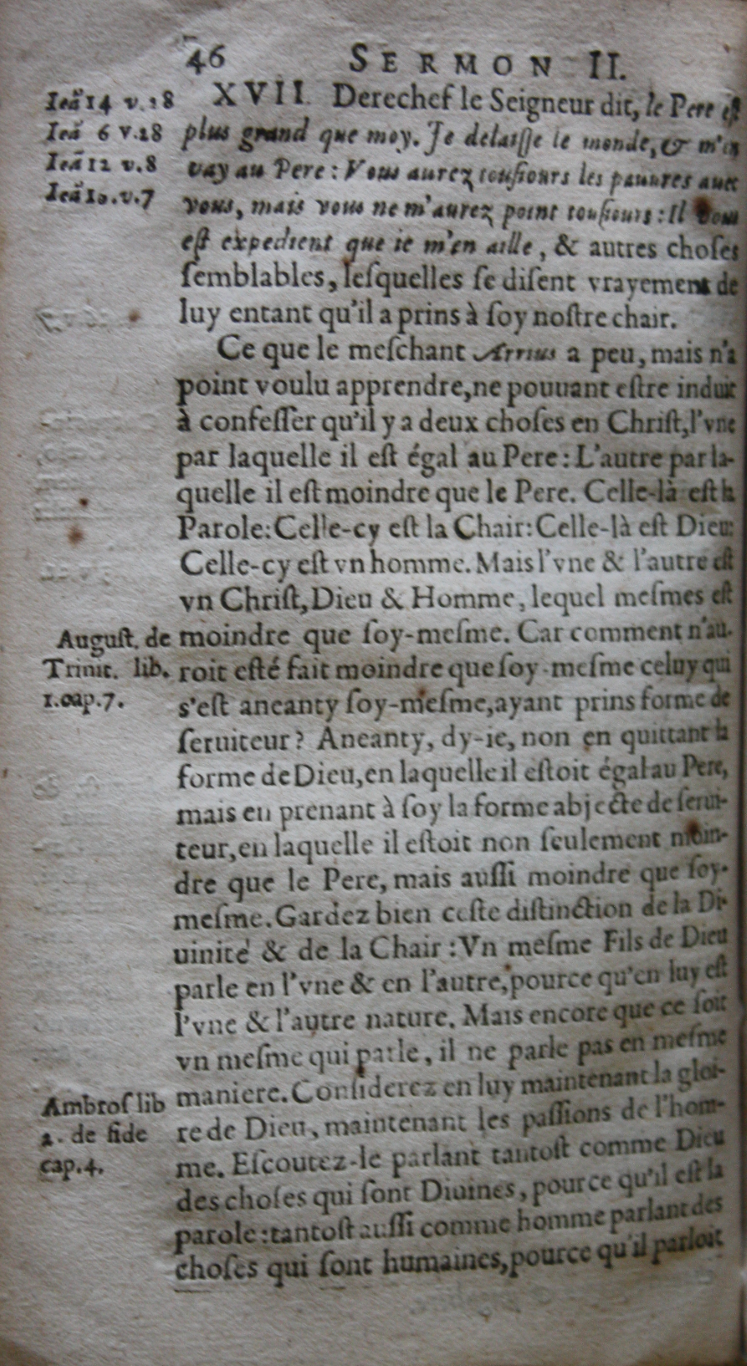 46 SERMON II.
Ieã 14 v.28
Ieã 6 v.28
Ieã 12 v.8
Ieã 10.v.7
XVII Derechef le Seigneur dit, le Pere eſt
plus grand que moy. Je delaiſſe le monde, & m'en
vay au Pere : Vous aurez touſiours les pauures auec
vous, mais vous ne m'aurez point touſiours : Il vous
eſt expedient que ie m'en aille, & autres choſes
ſemblables, leſquelles ſe diſent vrayement de
luy entant qu'il a prins à ſoy noſtre chair.
Ce que le meſchant Arrius a peu, mais n'a
point voulu apprendre, ne pouuant eſtre induit
à confeſſer qu'il y a deux choſes en Chriſt, l'vne
par laquelle il eſt égal au Pere : L'autre par la-
quelle il eſt moindre que le Pere. Celle-là eſt la
Parole: Celle-cy eſt la Chair: Celle-là eſt Dieu:
Celle-cy eſt vn homme. Mais l'vne & l'autre eſt
vn Chriſt, Dieu & Homme, lequel meſmes eſt
moindre que ſoy-meſme. Car comment n'au-
roit eſté fait moindre que ſoy-meſme celuy qui
s'eſt aneanty ſoy-meſme, ayant prins forme de
ſeruiteur? Aneanty, dy-ie, non en quittant la
forme de Dieu, en laquelle il eſtoit égal au Pere,
mais en prenant à ſoy la forme abjecte de ſerui-
teur, en laquelle il eſtoit non ſeulement moin-
dre que le Pere, mais auſſi moindre que ſoy-
meſme. Gardez bien ceſte diſtinction de la Di-
uinité & de la Chair : Vn meſme Fils de Dieu
parle en l'vne & en l'autre, pource qu'en luy eſt
l'vne & l'autre nature. Mais encore que ce ſoit
vn meſme qui parle, il ne parle pas en meſme
maniere. Conſiderez en luy maintenant la gloi-
re de Dieu, maintenant les paſſions de l'hom-
me. Eſcoutez-le parlant tantoſt comme Dieu
des choſes qui ſont Diuines, pource qu'il eſt la
parole : tantoſt auſſi comme homme parlant des
choſes qui ſont humaines, pource qu'il parloit
Auguſt. de
Trinit. lib.
1.cap.7.
Ambroſ lib
2. de fide
cap.4.